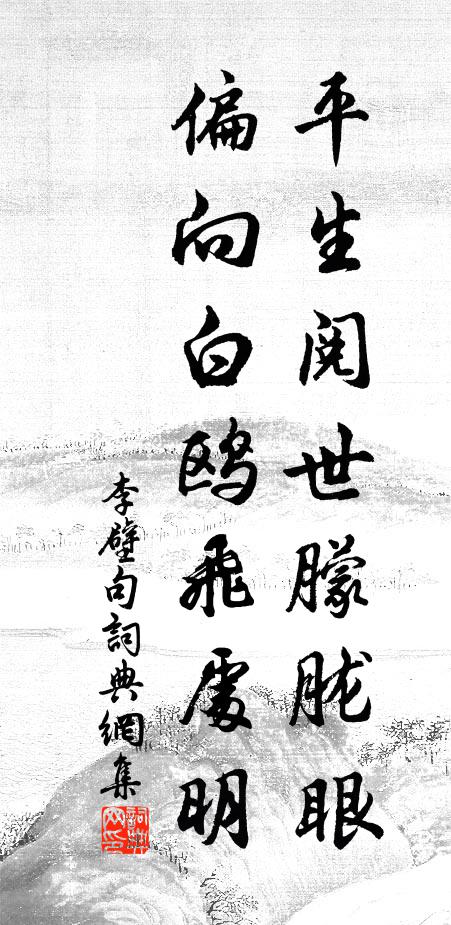 平生閱世朦朧眼
偏向白鷗飛處明
李壁句詞典網集